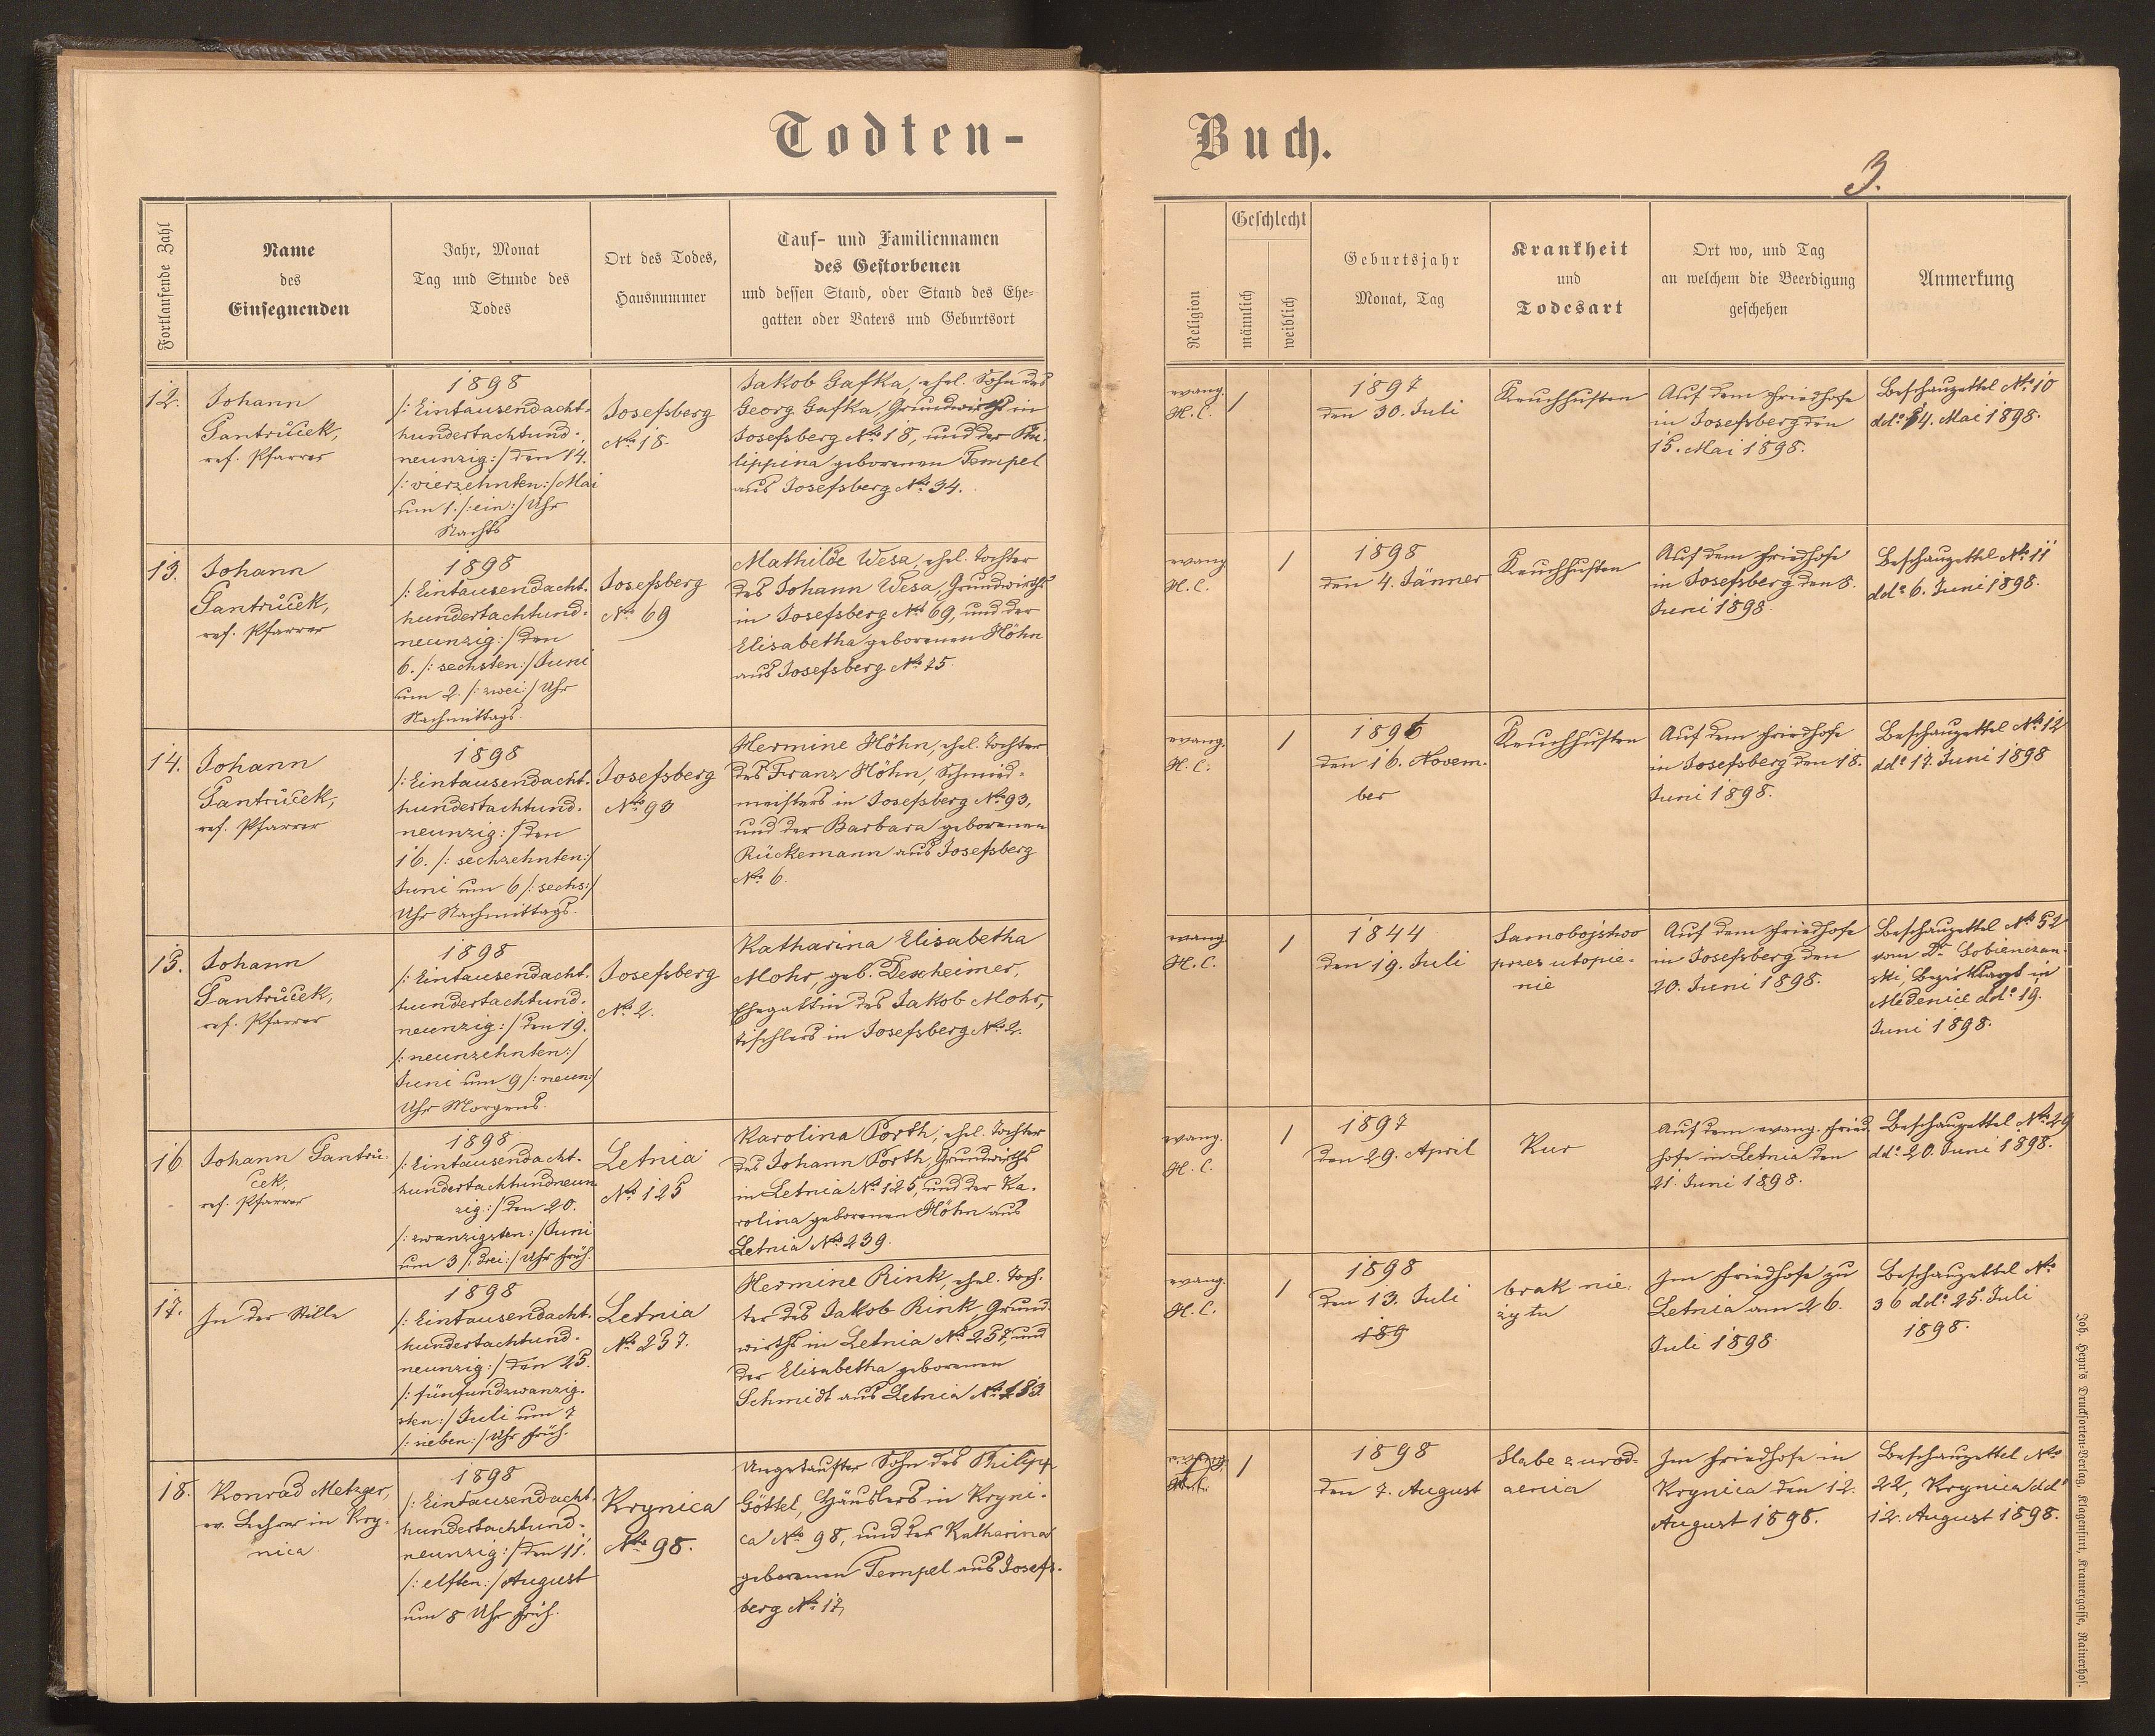 Todten-
Buch.
3.
Fortlaufende Zahl
Name
des
Einsegnenden
Jahr, Monat
Tag und Stunde des
Todes
Ort des Todes,
Hausnummer
Tauf- und Familiennamen
des Gestorbenen
und dessen Stand, oder Stand des Ehe-
gatten oder Vaters und Geburtsort
Religion
Geschlecht
männlich
weiblich
Geburtsjahr
Monat, Tag
Krankheit
und
Todesart
Ort wo, und Tag
an welchem die Beerdigung
geschehen
Anmerkung
12.
Johann
ref. Pfarrer
1898
/: Eintausendacht-
hundertachtund-
neunzig:/ den 14.
/: vierzehnten:/ Mai
um 1. /: ein:/ Uhr
Nachts
Josefsberg
No 18.
Jakob Gafka, ehel. Sohn des
Georg Gafka, Grundwirths in
Josefsberg No 18, und der Phi-
lippina geborenen Tempel
aus Josefsberg No 34.
evang.
H. C.
1
1897
den 30. Juli
Keuchhusten
Auf dem Friedhofe
in Josefsberg den
15. Mai 1898.
Beschauzettel No 10
ddo 14. Mai 1898.
13.
Johann
ref. Pfarrer
1898
/: Eintausendacht-
hundertachtund-
neunzig:/ den
6. /: sechsten:/ Juni
um 2. /: zwei:/ Uhr
Nachmittags.
Josefsberg
No 69
Mathilde Wesa, ehel. Tochter
des Johann Wesa, Grundwirths
in Josefsberg No 69, und der
Elisabetha geborenen Höhn
aus Josefsberg No 25.
evang
H. C.
1
1898
den 4. Jänner
Keuchhusten
Auf dem Friedhofe
in Josefsberg den 8.
Juni 1898.
Beschauzettel No 11
ddo 6. Juni 1898.
14.
Johann
ref. Pfarrer
1898
/: Eintausendacht-
hundertachtund-
neunzig:/ den
16. /: sechzehnten:/
Juni um 6 /: sechs:/
Uhr Nachmittags.
Josefsberg
No 93
Hermine Höhn, ehel. Tochter
des Franz Höhn, Schmied-
meisters in Josefsberg No 93,
und der Barbara geborenen
Rückemann aus Josefsberg
No 6.
evang.
H. C.
1
1896
den 16. Novem-
ber
Keuchhusten
Auf dem Friedhofe
in Josefsberg den 18.
Juni 1898.
Beschauzettel No 12
ddo 17. Juni 1898
15.
Johann
ref. Pfarrer
1898
/: Eintausendacht-
hundertachtund-
neunzig:/ den 19.
/: neunzehnten:/
Juni um 9 /: neun:/
Uhr Morgens.
Josefsberg
No 2.
Katharina Elisabetha
Mohr, geb. Dexheimer,
Ehegattin des Jakob Mohr,
Tischlers in Josefsberg No 2.
evang.
H. C.
1
1844
den 19. Juli
Samobojstwo
przez utopie-
nie
Auf dem Friedhofe
in Josefsberg den
20. Juni 1898.
Beschauzettel No 52
vom Dr
ski, Bezirksarzt in
Medenice ddo 19.
Juni 1898.
16.
Johann
ref. Pfarrer
1898
/: Eintausendacht-
hundertachtundneun
zig:/ den 20.
/: zwanzigsten:/ Juni
um 3 /: drei:/ Uhr früh.
Letnia
No 125
Karolina Porth, ehel. Tochter
des Johann Porth, Grundwirths
in Letnia No 125, und der Ka-
rolina geborenen Höhn aus
Letnia No 239.
evang.
H. C.
1
1897
den 29. April
Kur
Auf dem evang. Fried
hofe in Letnia den
21. Juni 1898.
Beschauzettel No 29
ddo 20. Juni 1898.
17.
In der Stille
1898
/: Eintausendacht-
hundertachtund-
neunzig:/ den 25.
/: fünfundzwanzig-
sten:/ Juli um 7
/: sieben:/ Uhr früh.
Letnia
No 257.
Hermine Rink, ehel. Toch-
ter des Jakob Rink, Grund-
wirths in Letnia No 257, und
der Elisabetha geborenen
Schmidt aus Letnia No 183
evang.
H. C.
1
1898
den 13. Juli
189
brak nie-
żytu
Im Friedhofe zu
Letnia am 26.
Juli 1898.
Beschauzettel No
36 ddo 25. Juli
1898.
18.
Konrad Metzger,
ev. Lehrer in Kry-
nica.
1898
/: Eintausendacht-
hundertachtund-
neunzig:/ den 11.
/: elften:/ August
um 8 Uhr früh.
Krynica
No 98.
Ungetaufter Sohn des Philipp
Göttel, Häuslers in Kryni-
ca No 98, und der Katharina
geborenen Tempel aus Josefs-
berg No 17,
1
1898
den 7. August
Slabe z urod-
zenia
Im Friedhofe in
Krynica den 12.
August 1898.
Beschauzettel No
22, Krynica ddo
12. August 1898.
Joh. Heyn's Drucksorten-Verlag, Klagenfurt, Kramergasse, Rainerhof.